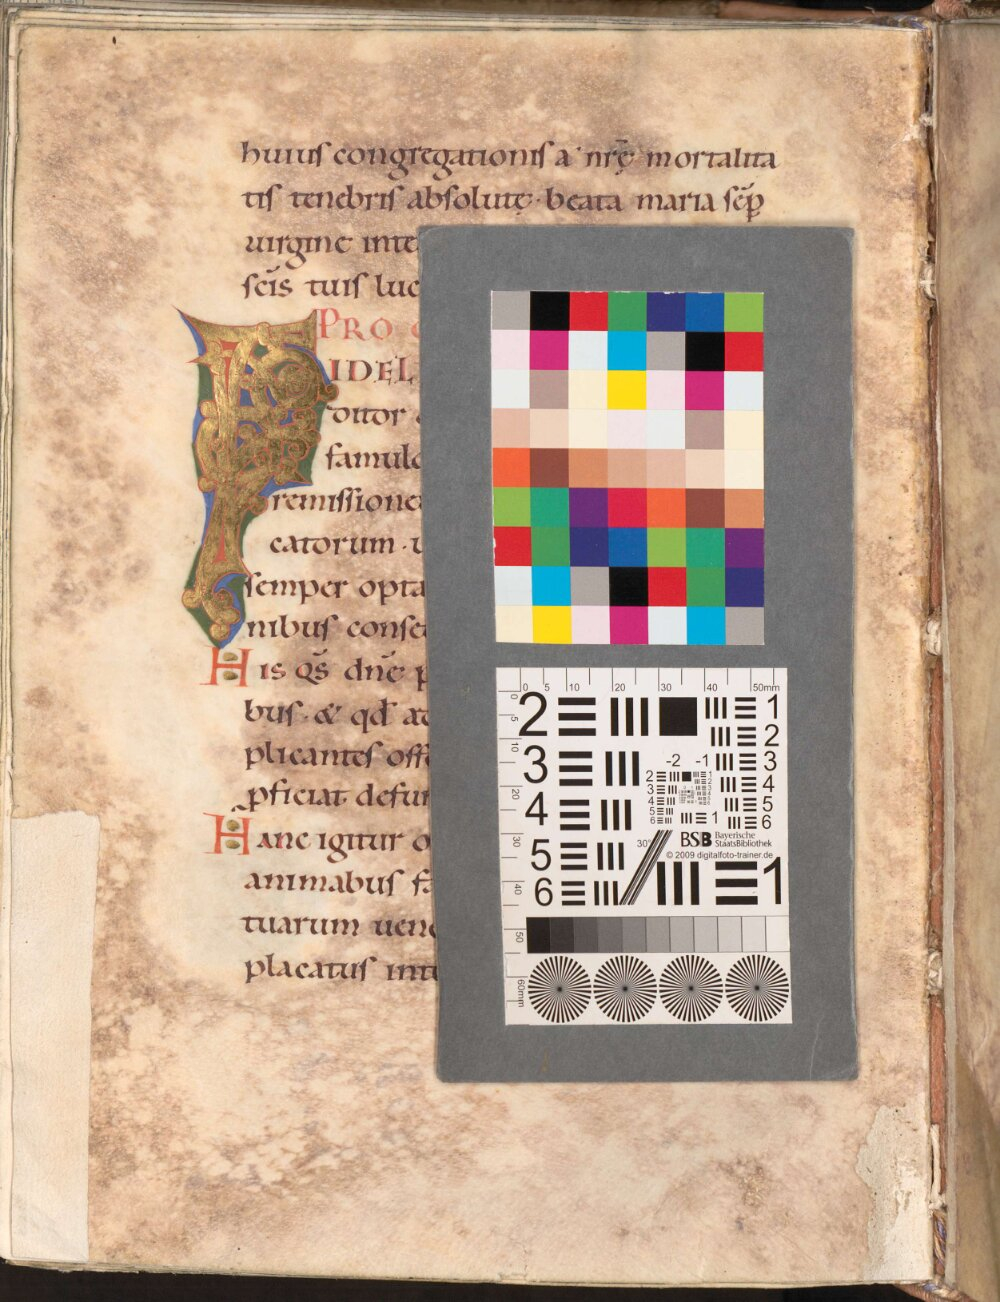 huius congregationis a nr̄ę mortalita
tis tenebris absolutę · beata maria sēp
uirgine inte
sc̄is tuis luc
PRO
FIDEL
ditor
famulo
remissione
catorum ·
semper opta
nibus conse
His qs̄ dn̄e p
bus · & qd at
plicantes off
pficiat defun
Hanc igitur o
animabus fa
tuarum uene
placatus inte
0 5 10 20 30 40 50mm
0 5 10 20 30 40 50 60mm
2 3 4 5 6
1 2 3 4 5 6
-2 -1
2 3 4 5 6
1
30°
BSB Bayerische StaatsBibliothek
© 2009 digitalfoto-trainer.de
1